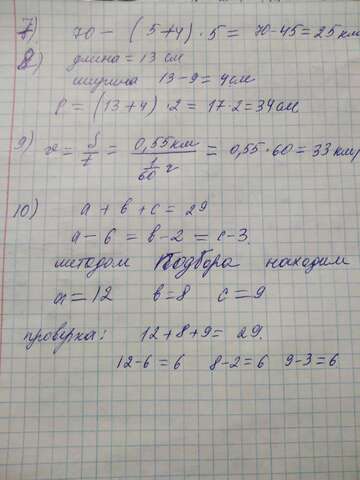 7) 70 - (5+4) · 5 = 70-45=25 км
8) длина = 13 см
ширина 13-9=4см
P = (13+4) · 2 = 17·2=34см
9) v = S/t = 0,55км / (1/60 ч) = 0,55·60 = 33 км/
10) a + b + c = 29
a - 6 = b - 2 = c - 3.
методом подбора находим
a = 12 b=8 c=9
проверка: 12+8+9= 29.
12-6=6 8-2=6 9-3=6